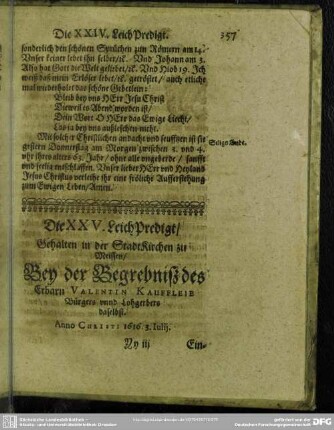 Die XXIV. LeichPredigt.
357
sonderlich den schönen Sprüchen zum Römern am 14.
Vnser keiner lebet jhm selber/ꝛc. Vnd Johann am 3.
Also hat Gott die Welt geliebet/ꝛc. Vnd Hiob 19. Ich
weiß daß mein Erlöser lebet/ꝛc. getröstet/ auch etliche
mal wiederholet das schöne Gebetlein:
Bleib bey vns HErr Jesu Christ
Dieweil es Abend worden ist/
Dein Wort O HErr das Ewige Liecht/
Laß ja bey vns außleschen nicht.
Mit solcher Christlichen andacht vnd seufftzen ist sie
gestern Donnerstag am Morgen zwischen 3. vnd 4.
vhr jhres alters 63. Jahr/ ohne alle vngeberde/ sanfft
vnd selig entschlaffen. Vnser lieber HErr vnd Heyland
Jesus Christus verleihe jhr eine fröliche Aufferstehung
zum Ewigen Leben/ Amen.
Seligs Ende.
Die XXV. LeichPredigt/
Gehalten in der StadtKirchen zu
Meissen/
Bey der Begrebniß des
Erbarn VALENTIN KAUFFLEIB
Bürgers vnnd Lohgerbers
daselbst.
Anno CHRISTI 1616. 3. Iulij.
Yy iij
Ein-